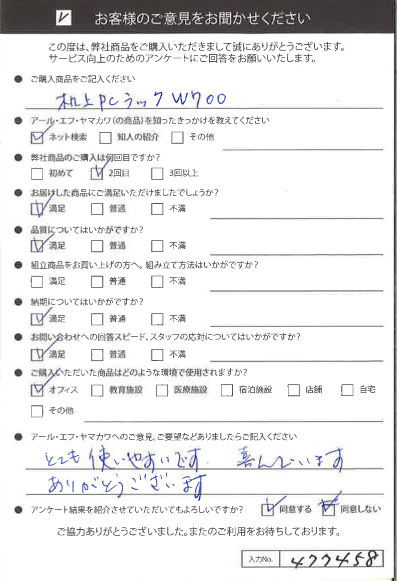 お客様のご意見をお聞かせください
この度は、弊社商品をご購入いただきまして誠にありがとうございます。
サービス向上のためのアンケートにご回答をお願いいたします。
● ご購入商品をご記入ください
机上PCラック W700
● アール・エフ・ヤマカワ(の商品)を知ったきっかけを教えてください
☑ ネット検索 □ 知人の紹介 □ その他
● 弊社商品のご購入は何回目ですか?
□ 初めて ☑ 2回目 □ 3回以上
● お届けした商品にご満足いただけましたでしょうか?
☑ 満足 □ 普通 □ 不満
● 品質についてはいかがですか?
☑ 満足 □ 普通 □ 不満
● 組立商品をお買い上げの方へ。組み立て方法はいかがですか?
□ 満足 □ 普通 □ 不満
● 納期についてはいかがですか?
☑ 満足 □ 普通 □ 不満
● お問い合わせへの回答スピード、スタッフの応対についてはいかがですか?
☑ 満足 □ 普通 □ 不満
● ご購入いただいた商品はどのような環境で使用されますか?
☑ オフィス □ 教育施設 □ 医療施設 □ 宿泊施設 □ 店舗 □ 自宅
□ その他
● アール・エフ・ヤマカワへのご意見、ご要望などありましたらご記入ください
とても使いやすいです. 喜んでいます
ありがとうございます
● アンケート結果を紹介させていただいてもよろしいですか? ☑ 同意する ☑ 同意しない
ご協力ありがとうございました。またのご利用をお待ちしております。
入力No. 477458